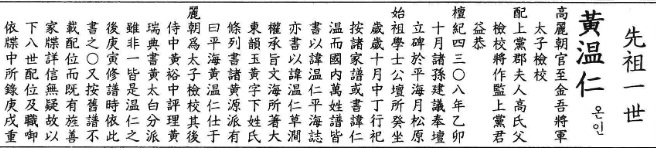 先祖一世
黃温仁 온인
高麗朝官至金吾將軍
太子檢校
配上黨郡夫人高氏父
檢校將作監上黨君
益恭
檀紀四三〇八年乙卯
十月諸孫建議奉壇
立碑於平海月松原
始祖學士公壇所癸坐
歲歲十月中丁行祀
按諸家譜或書諱仁
温而國內萬姓譜皆
書以諱温仁平海誌
亦書以諱温仁草澗
權承旨文海所著大
東韻玉黃字下姓氏
條列書諸黃源派有
曰平海黃温仁仕于
麗朝爲太子檢校其後
侍中黃裕中評理黃
瑞典書黃太白分派
雖非一皆是温仁之
後庚寅修譜時依此
書之〇又按舊譜不
載配位而既有旌善
家牒詳信無疑故以
下八世配位及職啣
依牒中所錄庚戌重